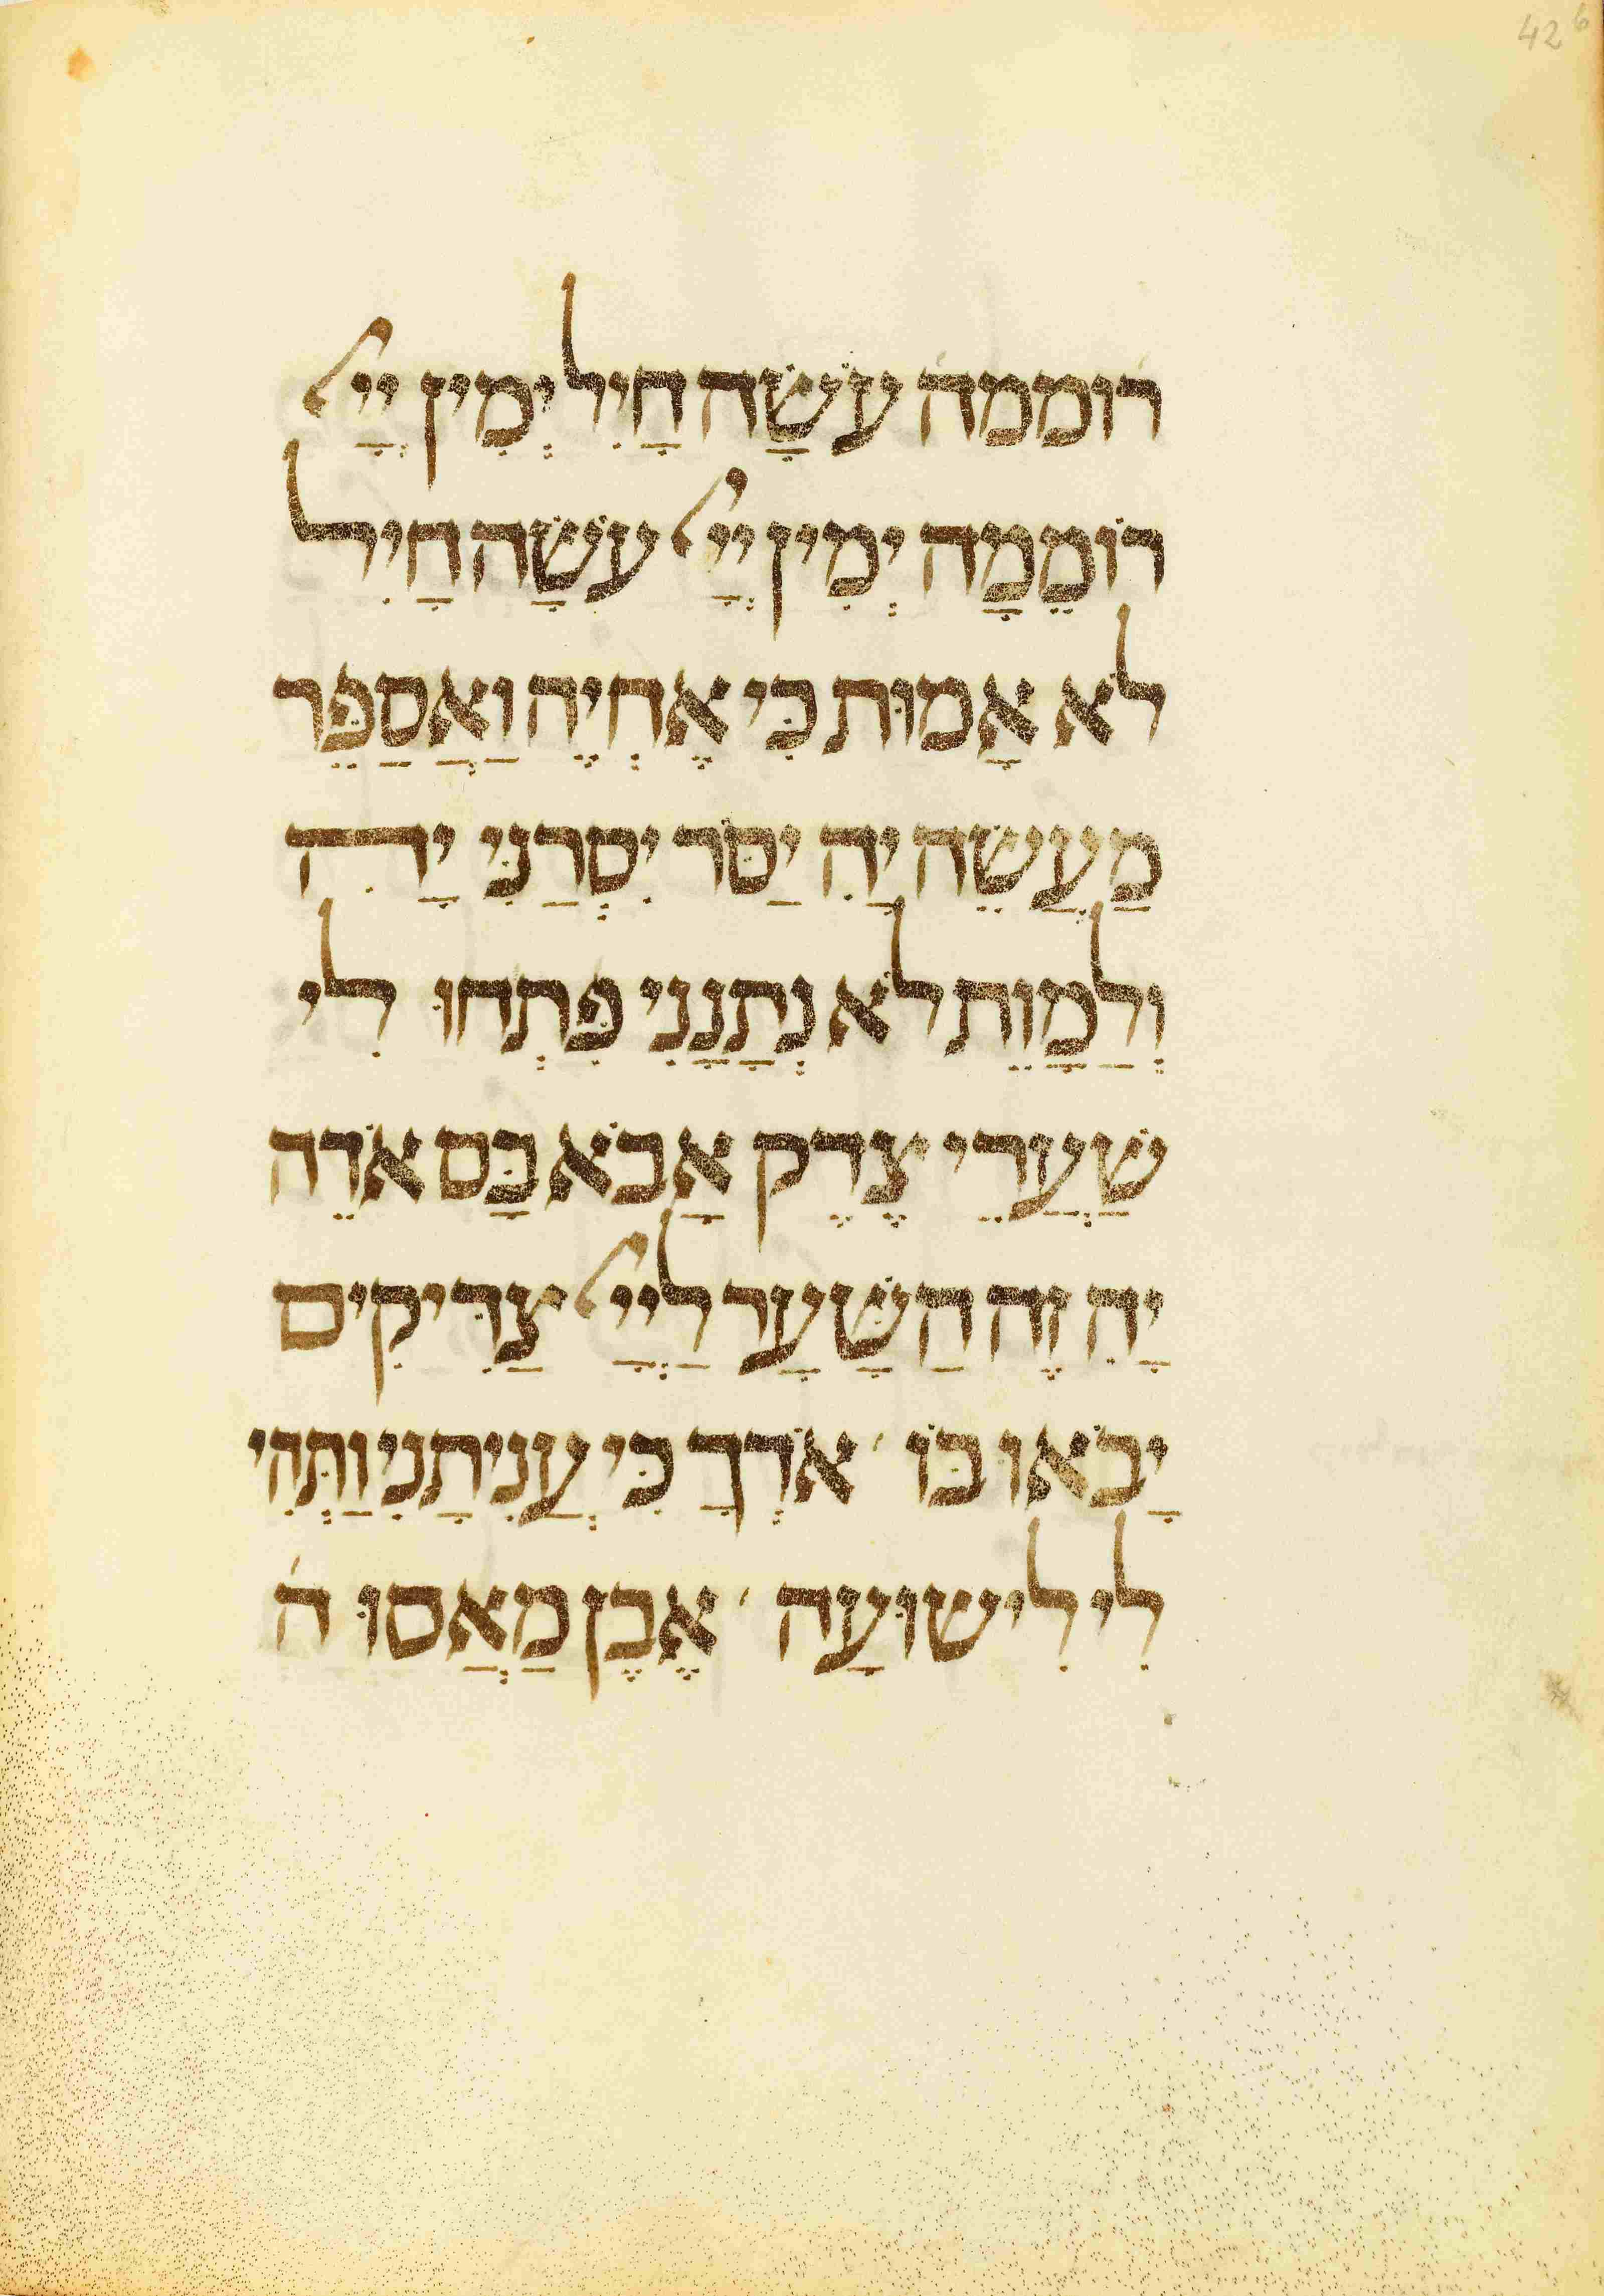 42 b
רוממה עֹשָׂה חָיִל יְמִין יְיָ
רוֹמֵמָה יְמִין יְיָ עֹשָׂה חָיִל
לֹא אָמוּת כִּי אֶחְיֶה וַאֲסַפֵּר
מַעֲשֵׂה יָהִּ יַסֹּר יִסְרַנִּי יָהִּ
וְלַמָּוֵת לֹא נְתָנָנִי פִּתְחוּ לִי
שַׁעֲרֵי צֶדֶק אָבֹא בָם אֹדֶה
יָהִּ זֶה הַשָּׁעַר לַיְיָ צַדִּיקִים
יָבֹאוּ בוֹ אֹדְךָ כִּי עֲנִיתָנִי וַתְּהִי
לִי לִישׁוּעָה אֶבֶן מָאֲסוּ ה